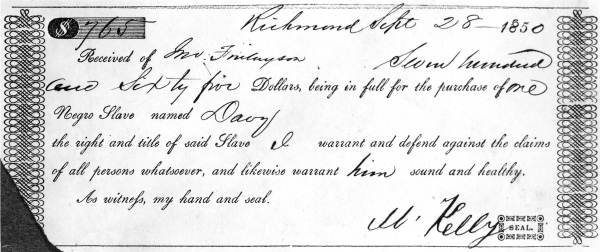 $765 Richmond Sept 28 1850
Received of Jno. Finlayson Seven hundred
and Sixty five Dollars, being in full for the purchase of one
Negro Slave named Davy
the right and title of said Slave I warrant and defend against the claims
of all persons whatsoever, and likewise warrant him sound and healthy.
As witness, my hand and seal.
M' Kelly SEAL.